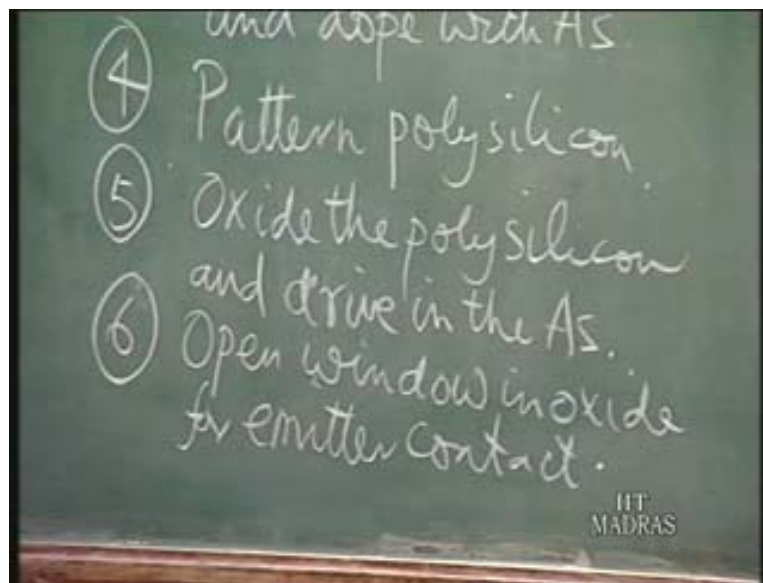 and dope with As.
4 Pattern polysilicon.
5 Oxide the polysilicon
and drive in the As.
6 Open window in oxide
for emitter contact.
IIT
MADRAS